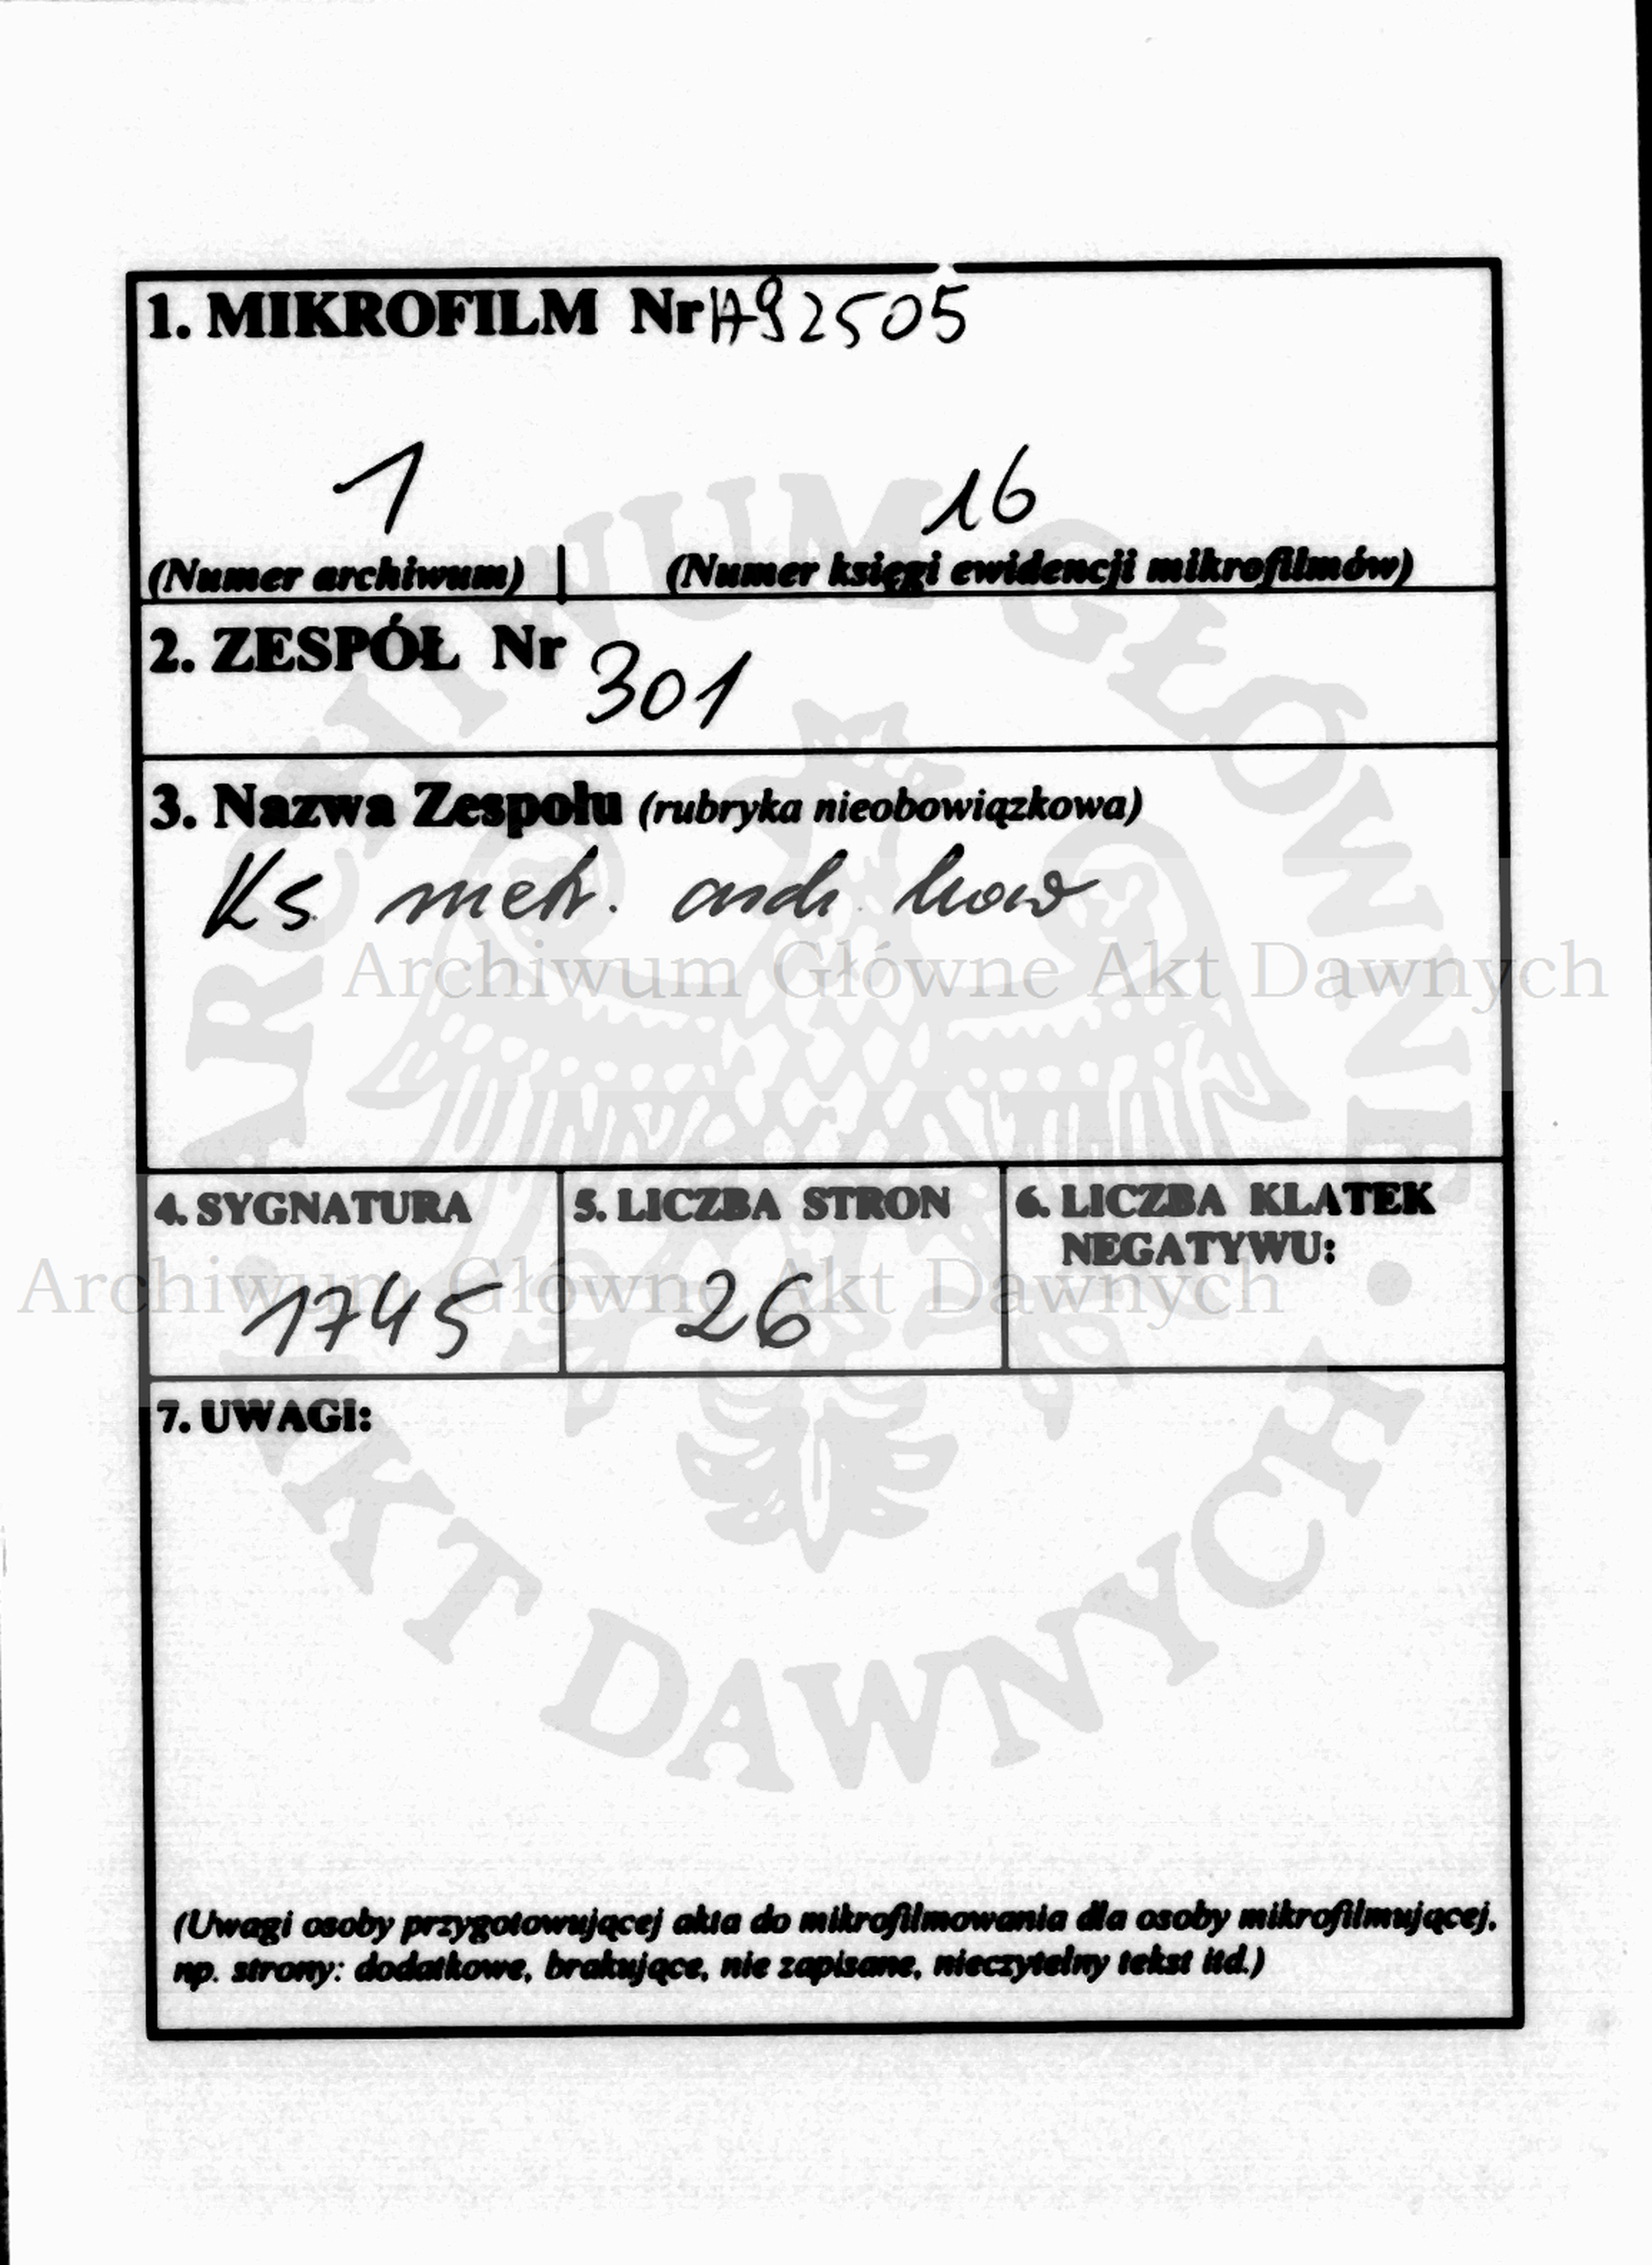 1. MIKROFILM Nr A92505
1 16
(Numer archiwum) (Numer księgi ewidencji mikrofilmów)
2. ZESPÓŁ Nr 301
3. Nazwa Zespołu (rubryka nieobowiązkowa)
Ks metr. arch. Lwow
Archiwum Główne Akt Dawnych
4. SYGNATURA 5. LICZBA STRON 6. LICZBA KLATEK
NEGATYWU:
Archiwum Główne Akt Dawnych
1745 26
7. UWAGI:
ARCHIWUM GŁÓWNE • AKT DAWNYCH •
(Uwagi osoby przygotowującej akta do mikrofilmowania dla osoby mikrofilmującej,
np. strony: dodatkowe, brakujące, nie zapisane, nieczytelny tekst itd.)